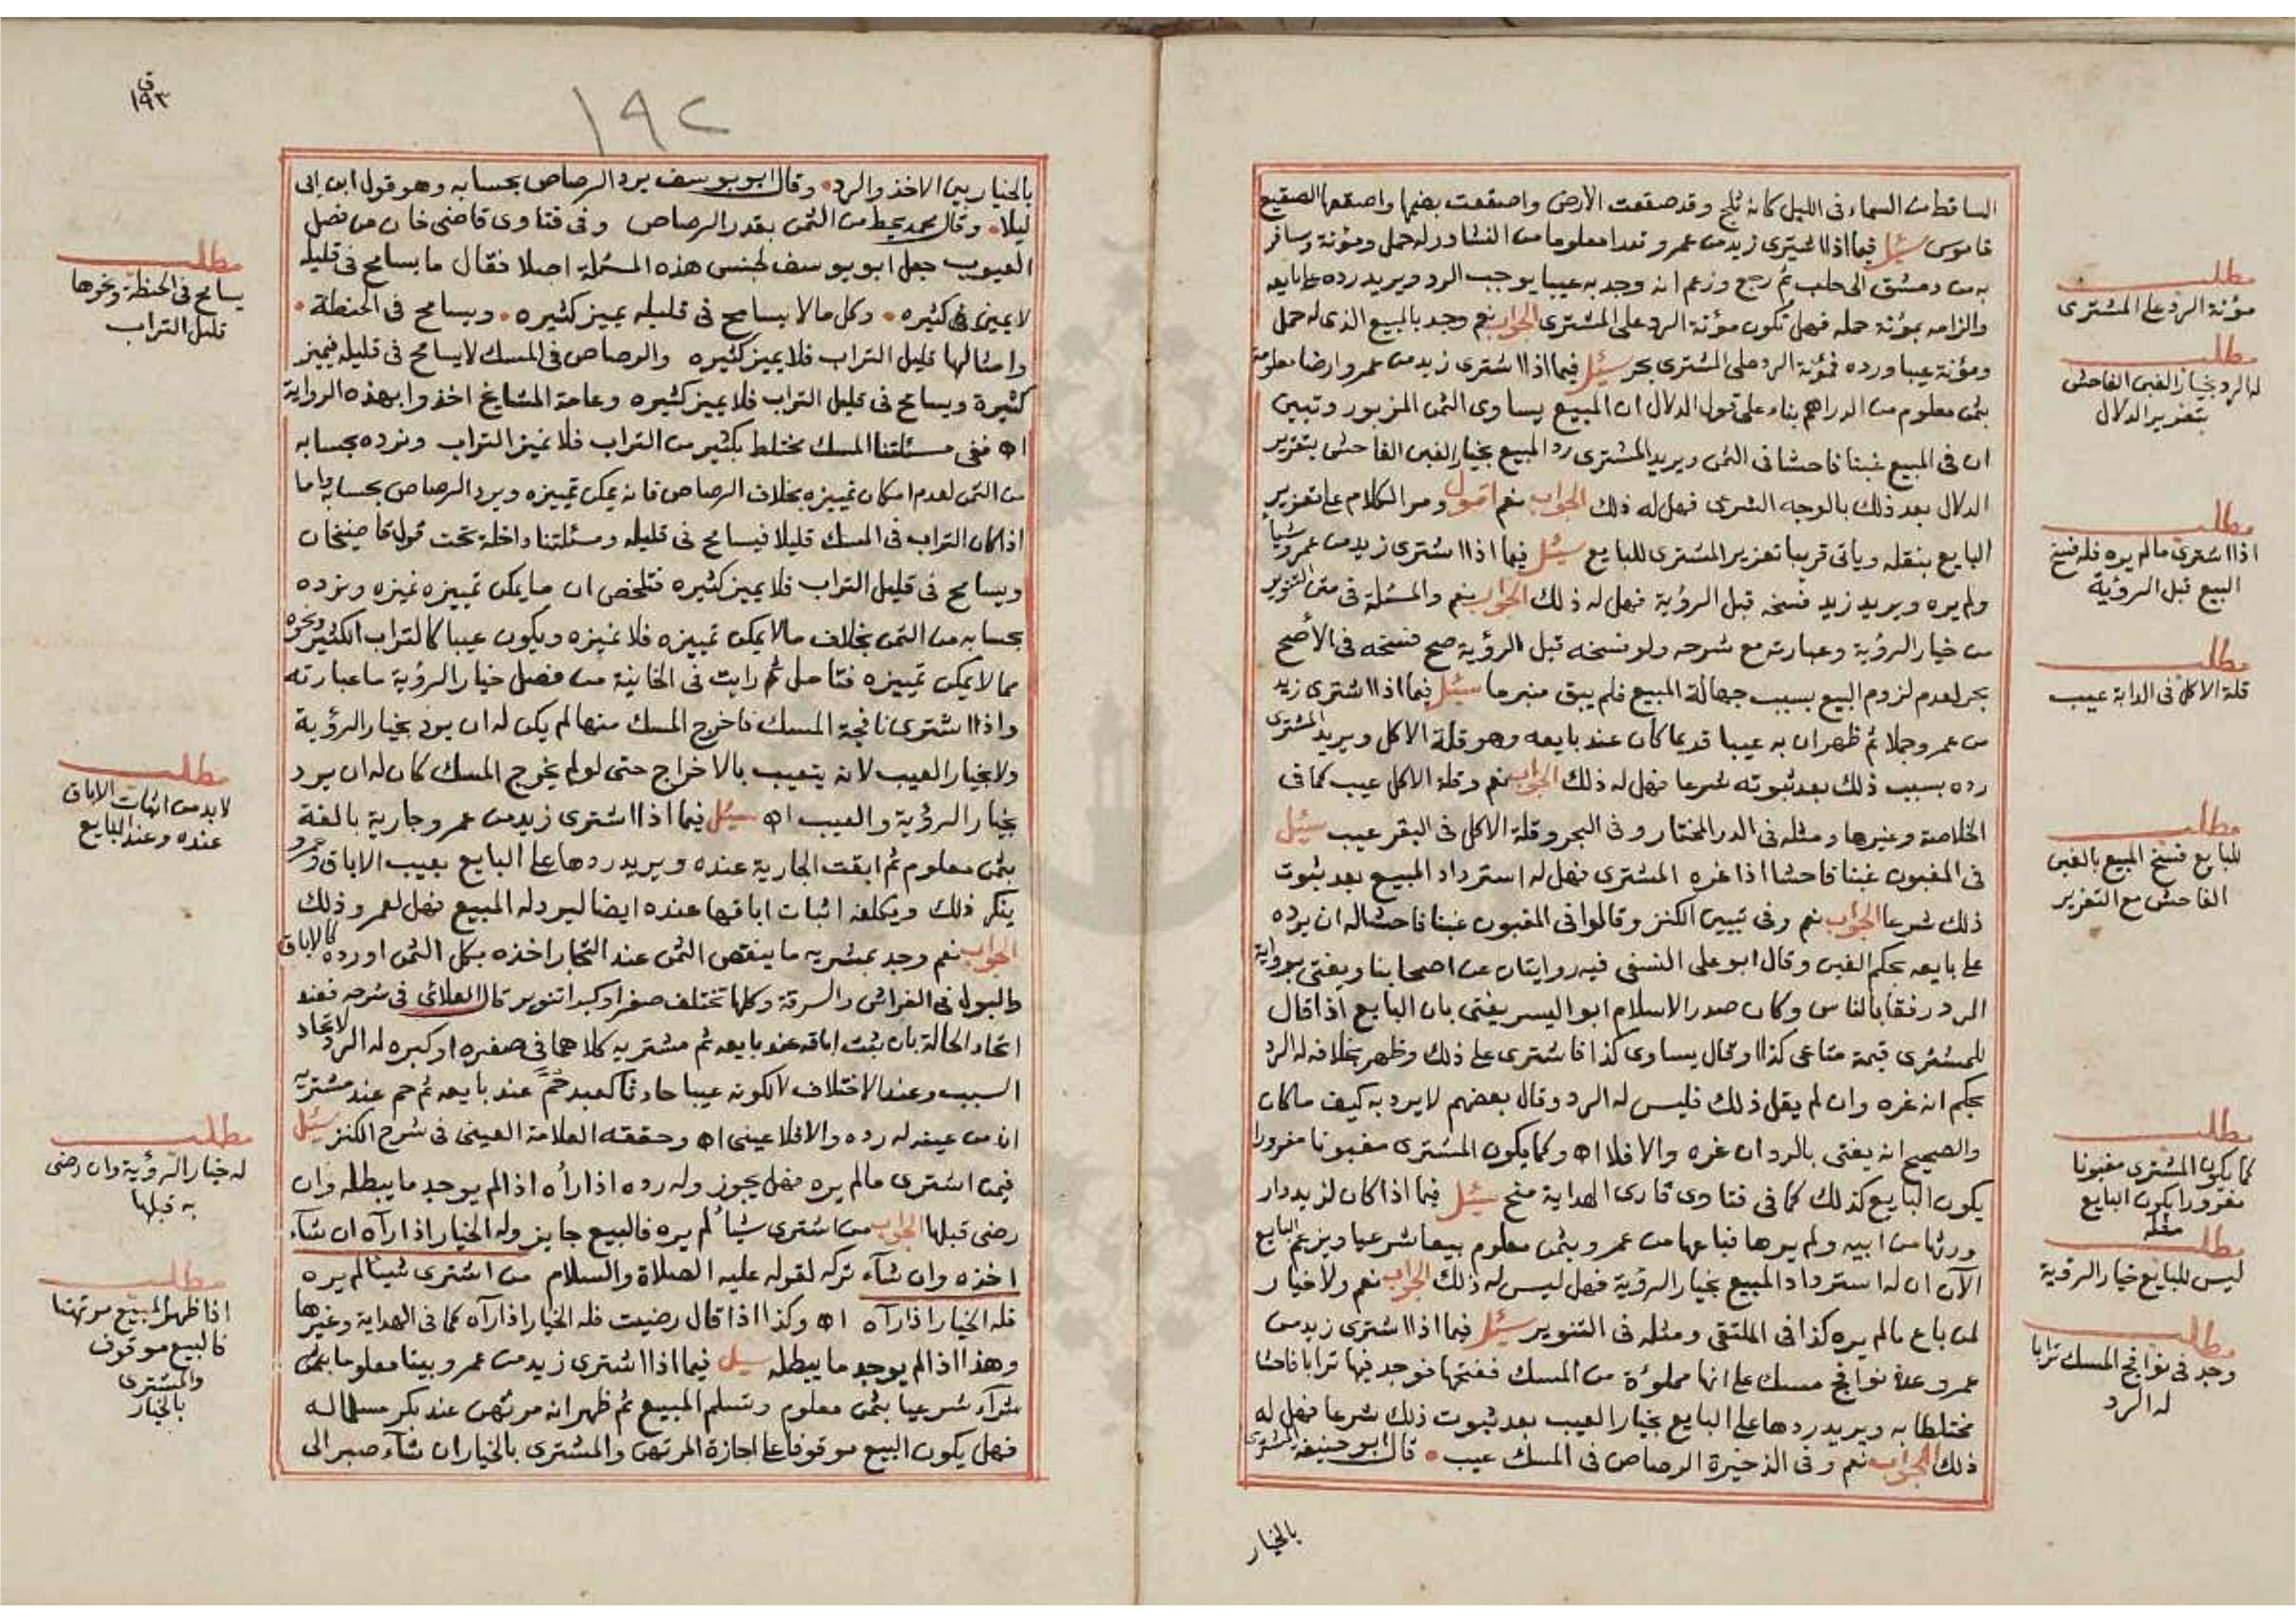 الساقط من السماء في الليل كانه ثلج وقد صقعت الارض واصقعت بضمها واصقعها الصقيع
قاموس سئل فيما اذا اشترى زيد من عمرو قدرا معلوما من النشادر له حمل ومؤنة وسافر
به من دمشق الى حلب ثم رجع وزعم انه وجد به عيبا يوجب الرد ويريد رده على بايعه
والزامه بمؤنة حمله فهل تكون مؤنة الرد على المشترى الجواب نعم وجد بالمبيع الذى له حمل
ومؤنة عيبا ورده فمؤنة الرد على المشترى بحر سئل فيما اذا اشترى زيد من عمرو ارضا معلومة
بثمن معلوم من الدراهم بناء على قول الدلال ان المبيع يساوى الثمن المزبور وتبين
ان فى المبيع غبنا فاحشا فى الثمن ويريد المشترى رد المبيع بخيار الغبن الفاحش بتغرير
الدلال بعد ذلك بالوجه الشرعى فهل له ذلك الجواب نعم اقول ومر الكلام على تغرير
البايع بنقله وياتى قريبا تغرير المشترى للبايع سئل فيما اذا اشترى زيد من عمرو شيأ
ولم يره ويريد زيد فسخه قبل الرؤية فهل له ذلك الجواب نعم والمسئلة فى متن التنوير
من خيار الرؤية وعبارته مع شرحه ولو فسخه قبل الرؤية صح فسخه فى الأصح
بحر لعدم لزوم البيع بسبب جهالة المبيع فلم يبق منبرما سئل فيما اذا اشترى زيد
من عمرو جملا ثم ظهر ان به عيبا قديما كان عند بايعه وهو قلة الاكل ويريد المشترى
رده بسبب ذلك بعد ثبوته شرعا فهل له ذلك الجواب نعم وقلة الاكل عيب كما فى
الخلاصة وغيرها ومثله فى الدر المختار وفى البحر وقلة الاكل فى البقر عيب سئل
فى المغبون غبنا فاحشا اذا غره المشترى فهل له استرداد المبيع بعد ثبوت
ذلك شرعا الجواب نعم وفى تبيين الكنز وقالوا فى المغبون غبنا فاحشا له ان يرده
على بايعه بحكم الغبن وقال ابو على النسفى فيه روايتان عن اصحابنا ويفتى برواية
الرد رفقا بالناس وكان صدر الاسلام ابو اليسر يفتى بان البايع اذا قال
للمشترى قيمة متاعى كذا او قال يساوى كذا فاشترى على ذلك وظهر بخلافه له الرد
بحكم انه غره وان لم يقل ذلك فليس له الرد وقال بعضهم لا يرد به كيف ما كان
والصحيح انه يفتى بالرد ان غره والا فلا اه وكما يكون المشترى مغبونا مغرورا
يكون البايع كذلك كما فى فتاوى قارى الهداية منح سئل فيما اذا كان لزيد دار
ورثها من ابيه ولم يرها فباعها من عمرو بثمن معلوم بيعا شرعيا ويزعم البايع
الآن ان له استرداد المبيع بخيار الرؤية فهل ليس له ذلك الجواب نعم ولا خيار
لمن باع مالم يره كذا فى الملتقى ومثله فى التنوير سئل فيما اذا اشترى زيد من
عمرو عدة نوافج مسك على انها مملؤة من المسك ففتحها فوجد فيها ترابا فاحشا
مختلطا به ويريد ردها على البايع بخيار العيب بعد ثبوت ذلك شرعا فهل له
ذلك الجواب نعم وفى الذخيرة الرصاص فى المسك عيب قال ابو حنيفة المشترى
بالخيار
مطلب
مؤنة الرد على المشترى
مطلب
له الرد بخيار الغبن الفاحش
بتغرير الدلال
مطلب
اذا اشترى مالم يره فله فسخ
البيع قبل الرؤية
مطلب
قلة الاكل فى الدابة عيب
مطلب
للبايع فسخ المبيع بالغبن
الفاحش مع التغرير
مطلب
كما يكون المشترى مغبونا
مغرورا يكون البايع
مثله
مطلب
ليس للبايع خيار الرؤية
مطلب
وجد فى نوافج المسك ترابا
له الرد
١٩٢
ق
١٩٣
بالخيار بين الاخذ والرد وقال ابو يوسف يرد الرصاص بحسابه وهو قول ابن ابى
ليلا وقال محمد يحط من الثمن بقدر الرصاص وفى فتاوى قاضى خان من فصل
العيوب جعل ابو يوسف لجنس هذه المسئلة اصلا فقال ما يسامح فى قليله
لا يميز كثيره وكل ما لا يسامح فى قليله يميز كثيره ويسامح فى الحنطة
وامثالها قليل التراب فلا يميز كثيره والرصاص فى المسك لا يسامح فى قليله فيميز
كثيرة ويسامح فى قليل التراب فلا يميز كثيره وعامة المشايخ اخذوا بهذه الرواية
اه ففى مسئلتنا المسك مختلط بكثير من التراب فلا نميز التراب ونرده بحسابه
من الثمن لعدم امكان تمييزه بخلاف الرصاص فانه يمكن تمييزه ويرد الرصاص بحسابه واما
اذا كان التراب فى المسك قليلا فيسامح فى قليله ومسئلتنا داخلة تحت قول قاضيخان
ويسامح فى قليل التراب فلا يميز كثيره فتلخص ان ما يمكن تمييزه نميزه ونرده
بحسابه من الثمن بخلاف مالا يمكن تمييزه فلا نميزه ويكون عيبا كالتراب الكثير ونحوه
مما لا يمكن تمييزه فتامل ثم رايت فى الخانية من فصل خيار الرؤية ما عبارته
واذا اشترى نافجة المسك فاخرج المسك منها لم يكن له ان يرد بخيار الرؤية
ولا بخيار العيب لانه يتعيب بالاخراج حتى لو لم يخرج المسك كان له ان يرد
بخيار الرؤية والعيب اه سئل فيما اذا اشترى زيد من عمرو جارية بالغة
بثمن معلوم ثم ابقت الجارية عنده ويريد ردها على البايع بعيب الاباق وعمرو
ينكر ذلك ويكلفه اثبات اباقها عنده ايضا ليرد له المبيع فهل لعمرو ذلك
الجواب نعم وجد بمشريه ما ينقص الثمن عند التجار اخذه بكل الثمن او رده كالاباق
والبول فى الفراش والسرقة وكلها تختلف صغرا وكبرا تنوير قال العلائى فى شرحه فعند
اتحاد الحالة بان ثبت اباقه عند بايعه ثم مشتريه كلاهما فى صغره او كبره له الرد لاتحاد
السبب وعند الاختلاف لا لكونه عيبا حادثا كعبد حم عند بايعه ثم حم عند مشتريه
ان من عيفه له رده والا فلا عينى اه وحققه العلامة العينى فى شرح الكنز سئل
فيمن اشترى مالم يره فهل يجوز وله رده اذا رأه اذا لم يوجد ما يبطله وان
رضى قبلها الجواب من اشترى شيأ لم يره فالبيع جايز وله الخيار اذا رآه ان شآء
اخذه وان شآء تركه لقوله عليه الصلاة والسلام من اشترى شيئا لم يره
فله الخيار اذا رآه اه وكذا اذا قال رضيت فله الخيار اذا رآه كما فى الهداية وغيرها
وهذا اذا لم يوجد ما يبطله سئل فيما اذا اشترى زيد من عمرو بيتا معلوما
شرآء شرعيا بثمن معلوم وتسلم المبيع ثم ظهر انه مرتهن عند بكر
فهل يكون البيع موقوفا على اجازة المرتهن والمشترى بالخيار ان شآء صبر الى
مطلب
يسامح فى الحنطة ونحوها
قليل التراب
مطلب
لا بد من اثبات الاباق
عنده وعند البايع
مطلب
له خيار الرؤية وان رضى
به قبلها
مطلب
اذا ظهر المبيع مرتهنا
فالبيع موقوف
والمشترى
بالخيار